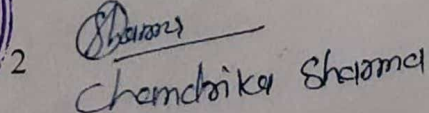 2 Sharma
Chandrika Sharma